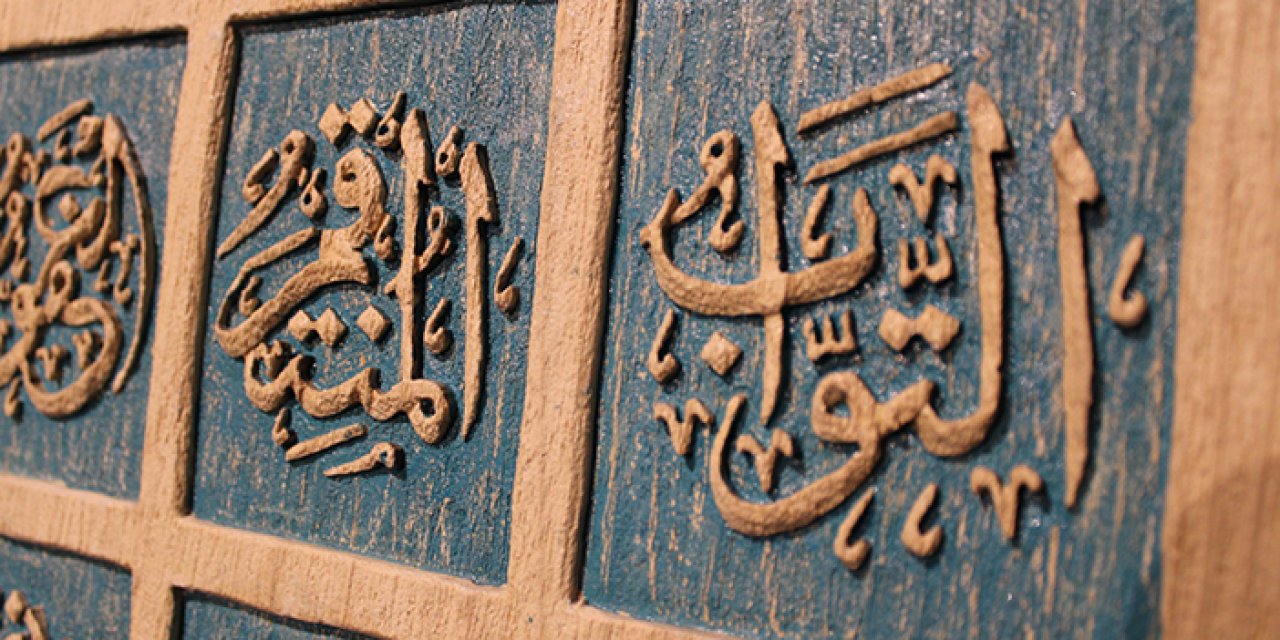 التَّوَّابُ
المُنْتَقِمُ